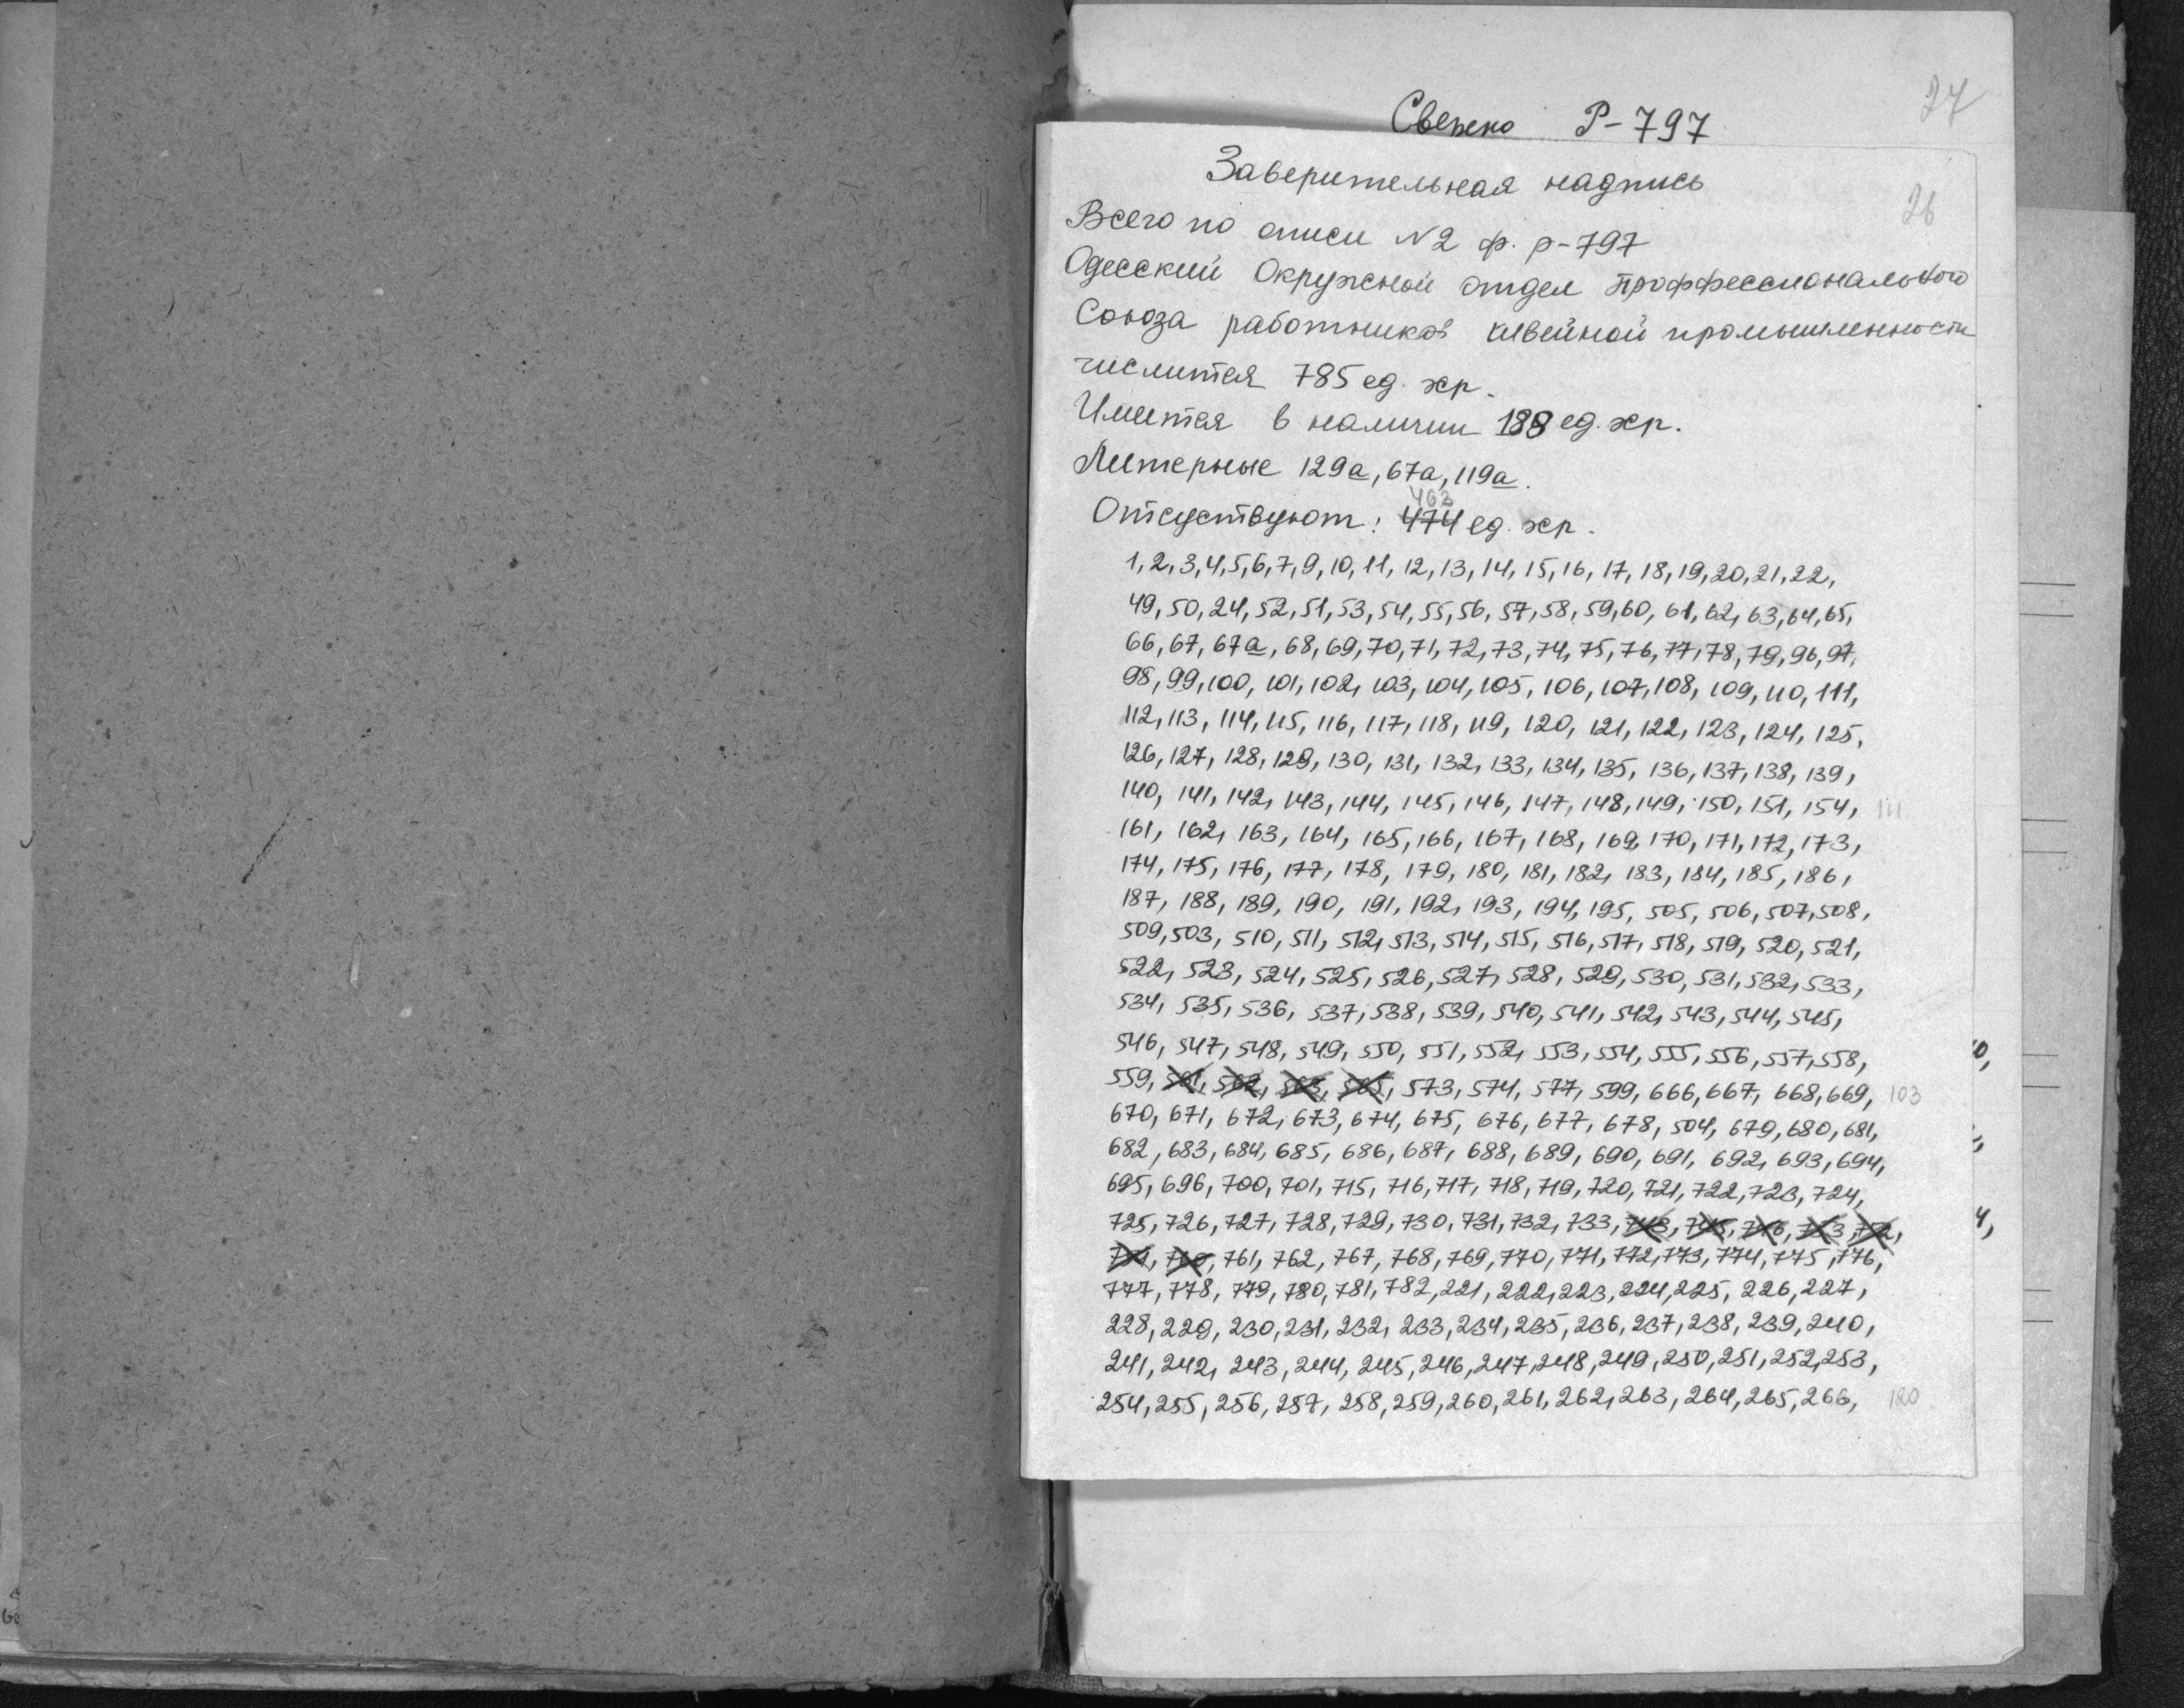 27
Сверено Р-797
Заверительная надпись
26
Всего по описи N2 ф. р-797
Одесский Окружной отдел проффессионального
Союза работников швейной промышленности
числится 785 ед. хр.
Имеется в наличии 188 ед. хр.
Литерные 129а, 67а, 119а.
463
Отсуствуют: 474 ед. хр.
1, 2, 3, 4, 5, 6, 7, 9, 10, 11, 12, 13, 14, 15, 16, 17, 18, 19, 20, 21, 22,
49, 50, 24, 52, 51, 53, 54, 55, 56, 57, 58, 59, 60, 61, 62, 63, 64, 65,
66, 67, 67а, 68, 69, 70, 71, 72, 73, 74, 75, 76, 77, 78, 79, 96, 97,
98, 99, 100, 101, 102, 103, 104, 105, 106, 107, 108, 109, 110, 111,
112, 113, 114, 115, 116, 117, 118, 119, 120, 121, 122, 123, 124, 125,
126, 127, 128, 129, 130, 131, 132, 133, 134, 135, 136, 137, 138, 139,
140, 141, 142, 143, 144, 145, 146, 147, 148, 149, 150, 151, 154, 141
161, 162, 163, 164, 165, 166, 167, 168, 169, 170, 171, 172, 173,
174, 175, 176, 177, 178, 179, 180, 181, 182, 183, 184, 185, 186,
187, 188, 189, 190, 191, 192, 193, 194, 195, 505, 506, 507, 508,
509, 503, 510, 511, 512, 513, 514, 515, 516, 517, 518, 519, 520, 521,
522, 523, 524, 525, 526, 527, 528, 529, 530, 531, 532, 533,
534, 535, 536, 537, 538, 539, 540, 541, 542, 543, 544, 545,
546, 547, 548, 549, 550, 551, 552, 553, 554, 555, 556, 557, 558,
559, 573, 574, 577, 599, 666, 667, 668, 669, 103
670, 671, 672, 673, 674, 675, 676, 677, 678, 504, 679, 680, 681,
682, 683, 684, 685, 686, 687, 688, 689, 690, 691, 692, 693, 694,
695, 696, 700, 701, 715, 716, 717, 718, 719, 720, 721, 722, 723, 724,
725, 726, 727, 728, 729, 730, 731, 732, 733,
761, 762, 767, 768, 769, 770, 771, 772, 773, 774, 775, 776,
777, 778, 779, 780, 781, 782, 221, 222, 223, 224, 225, 226, 227,
228, 229, 230, 231, 232, 233, 234, 235, 236, 237, 238, 239, 240,
241, 242, 243, 244, 245, 246, 247, 248, 249, 250, 251, 252, 253,
254, 255, 256, 257, 258, 259, 260, 261, 262, 263, 264, 265, 266, 120